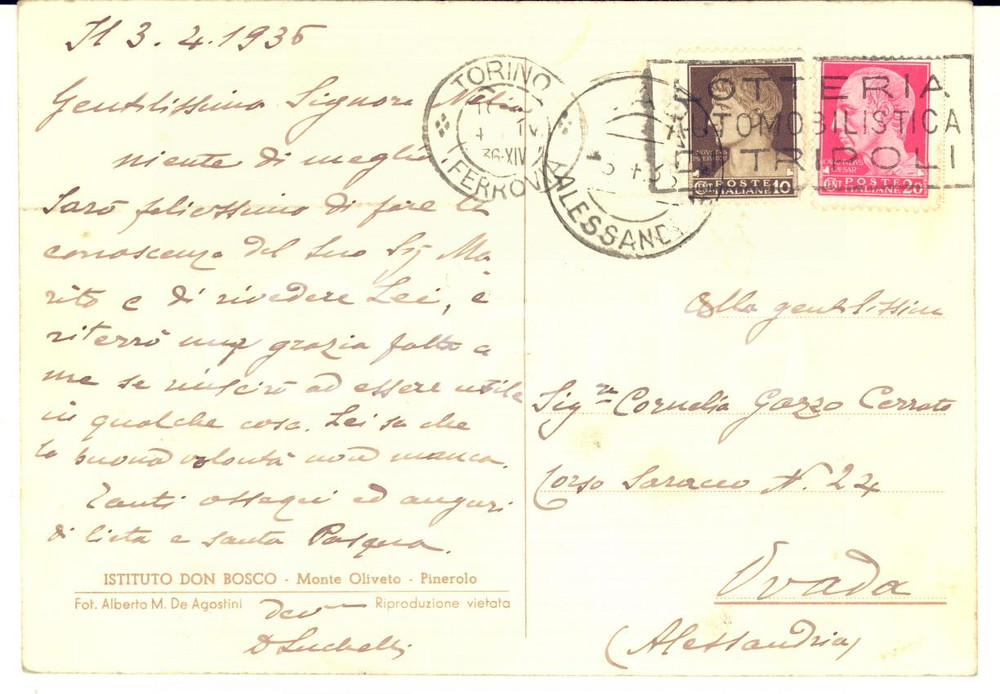 Il 3.4.1936
Gentilissima Signora Nelia
niente di meglio
Sarò felicissimo di fare la
conoscenza del Suo Sig Ma
rito e di rivedere Lei, e
riterrò una grazia fatta a
me se riuscirò ad essere utile
in qualche cosa. Lei sa che
la buona volontà non manca.
Tanti ossequi ed auguri
di lieta e santa Pasqua.
ISTITUTO DON BOSCO - Monte Oliveto - Pinerolo
Fot. Alberto M. De Agostini
Riproduzione vietata
dev
TORINO
36·XIV
FERROV
ALESSAND
LOTTERIA
AUTOMOBILISTICA
DI TRIPOLI
POSTE ITALIANE 10
POSTE ITALIANE 20
Alla gentilissima
Sig.ra Cornelia Gazzo Cerrato
Corso Saracco N. 24
Ovada
(Alessandria)